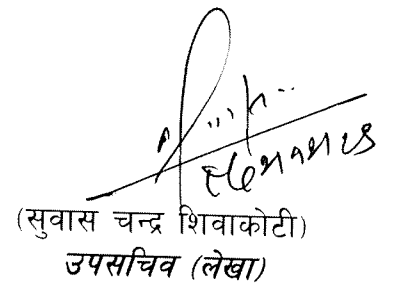 (सुवास चन्द्र शिवाकोटी)
उपसचिव (लेखा)